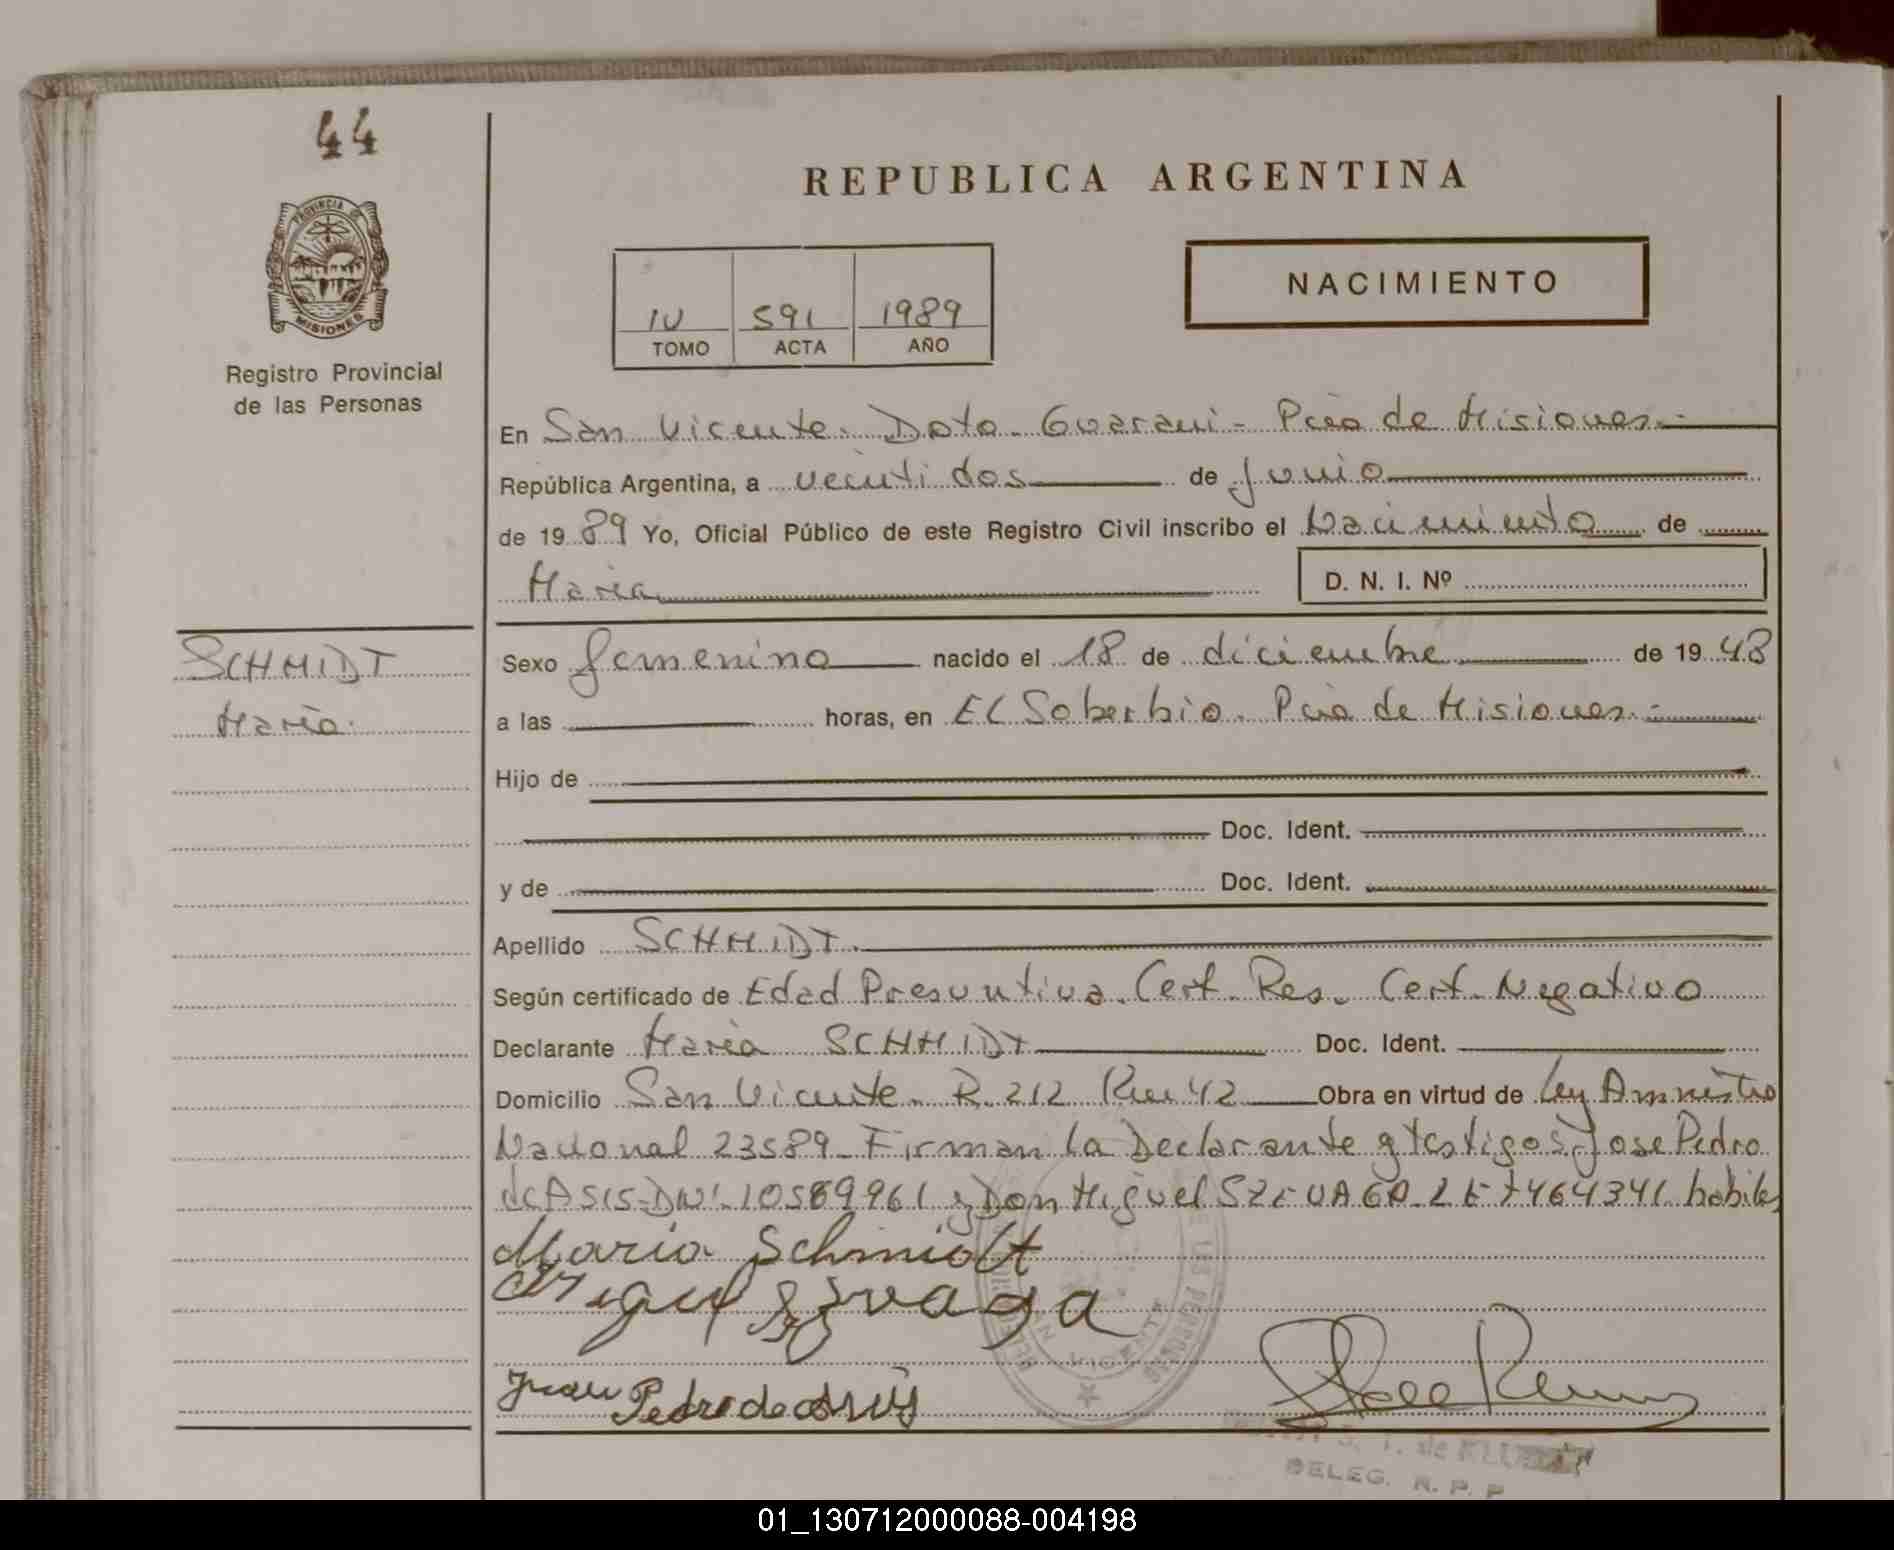 44
REPUBLICA ARGENTINA
PROVINCIA DE
MISIONES
Registro Provincial
de las Personas
IV 591 1989
TOMO ACTA AÑO
NACIMIENTO
En San Vicente. Dpto. Guarani - Pcia de Misiones.-
República Argentina, a veinti dos de Junio
de 1989 Yo, Oficial Público de este Registro Civil inscribo el Nacimiento de
Maria D. N. I. Nº
SCHMIDT
Maria.
Sexo femenino nacido el 18 de diciembre de 1948
a las horas, en El Soberbio. Pcia de Misiones.-
Hijo de
Doc. Ident.
y de Doc. Ident.
Apellido SCHMIDT.
Según certificado de Edad Presuntiva. Cert. Res. Cert. Negativo
Declarante Maria SCHMIDT Doc. Ident.
Domicilio San Vicente. R. 212 Km 42 Obra en virtud de Ley Amnistia
Nacional 23589 - Firman la Declarante y testigos Jose Pedro
de ASIS - DNI. 10589961 y Don Miguel SZEVAGA. LE 7464341 habiles
Maria Schmidt
Miguel
Juan Pedro de Asis
SAN VICENTE
DELEG. R. P. P
01_130712000088-004198